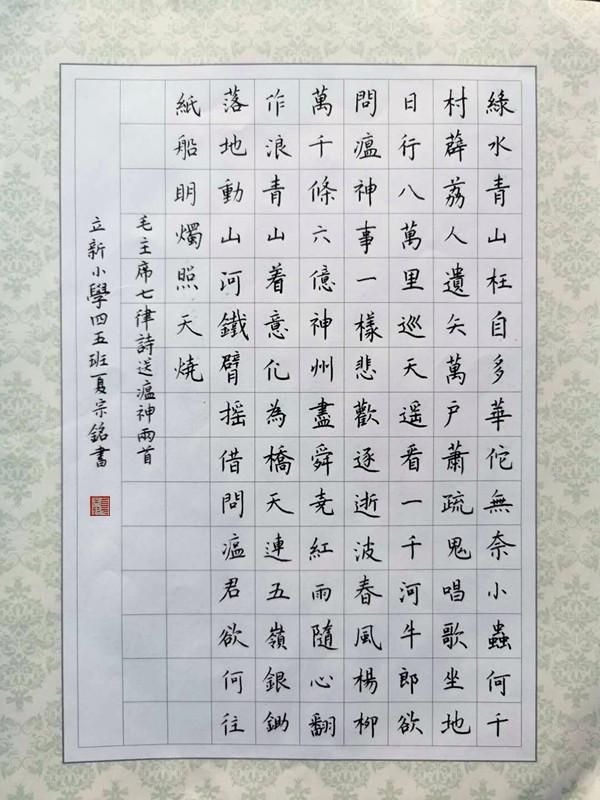 綠水青山枉自多華佗無奈小蟲何千
村薜荔人遺矢萬户蕭疏鬼唱歌坐地
日行八萬里巡天遥看一千河牛郎欲
問瘟神事一樣悲歡逐逝波春風楊柳
萬千條六億神州盡舜堯紅雨隨心翻
作浪青山着意化為橋天連五嶺銀鋤
落地動山河鐵臂摇借問瘟君欲何往
紙船明燭照天燒
毛主席七律詩送瘟神兩首
立新小學四五班夏宗銘書